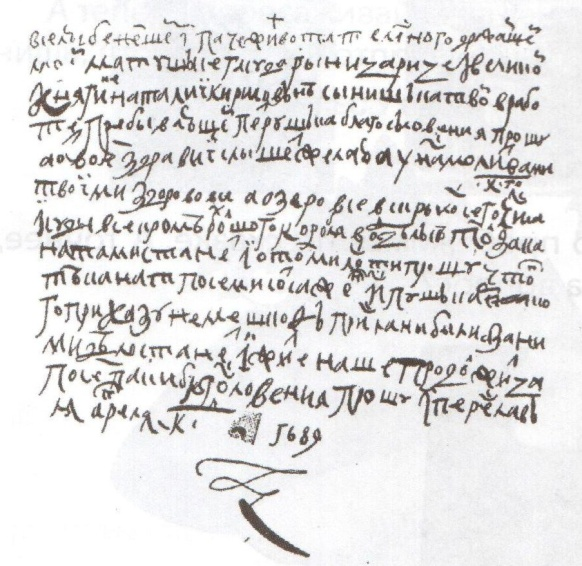 вселюбезнешеi i паче живота телесного дражашеi
моеi матушъке гасударыни царице i великоi
княгине наталиi кириловъне сынишъка твоi в рабо
те пребывающеi петрушъка благословения прошу
а о твоем здравиi слышеть желаю а у нас молитвами
твоiми здорово все а озеро все вскрылось сего к го числа
i суды все кромъ болшого корабля в одъделъке толко за кана
натами станет i о том милости прошу чтоб
тъ канаты по семисот сажен ис пушъкаръско
го приказу не мешкоф присланы были а за ни
ми дъло станет i житие наше продолжитца
по сем паки благословения прошу iс переславъ
ля апреля к 1689